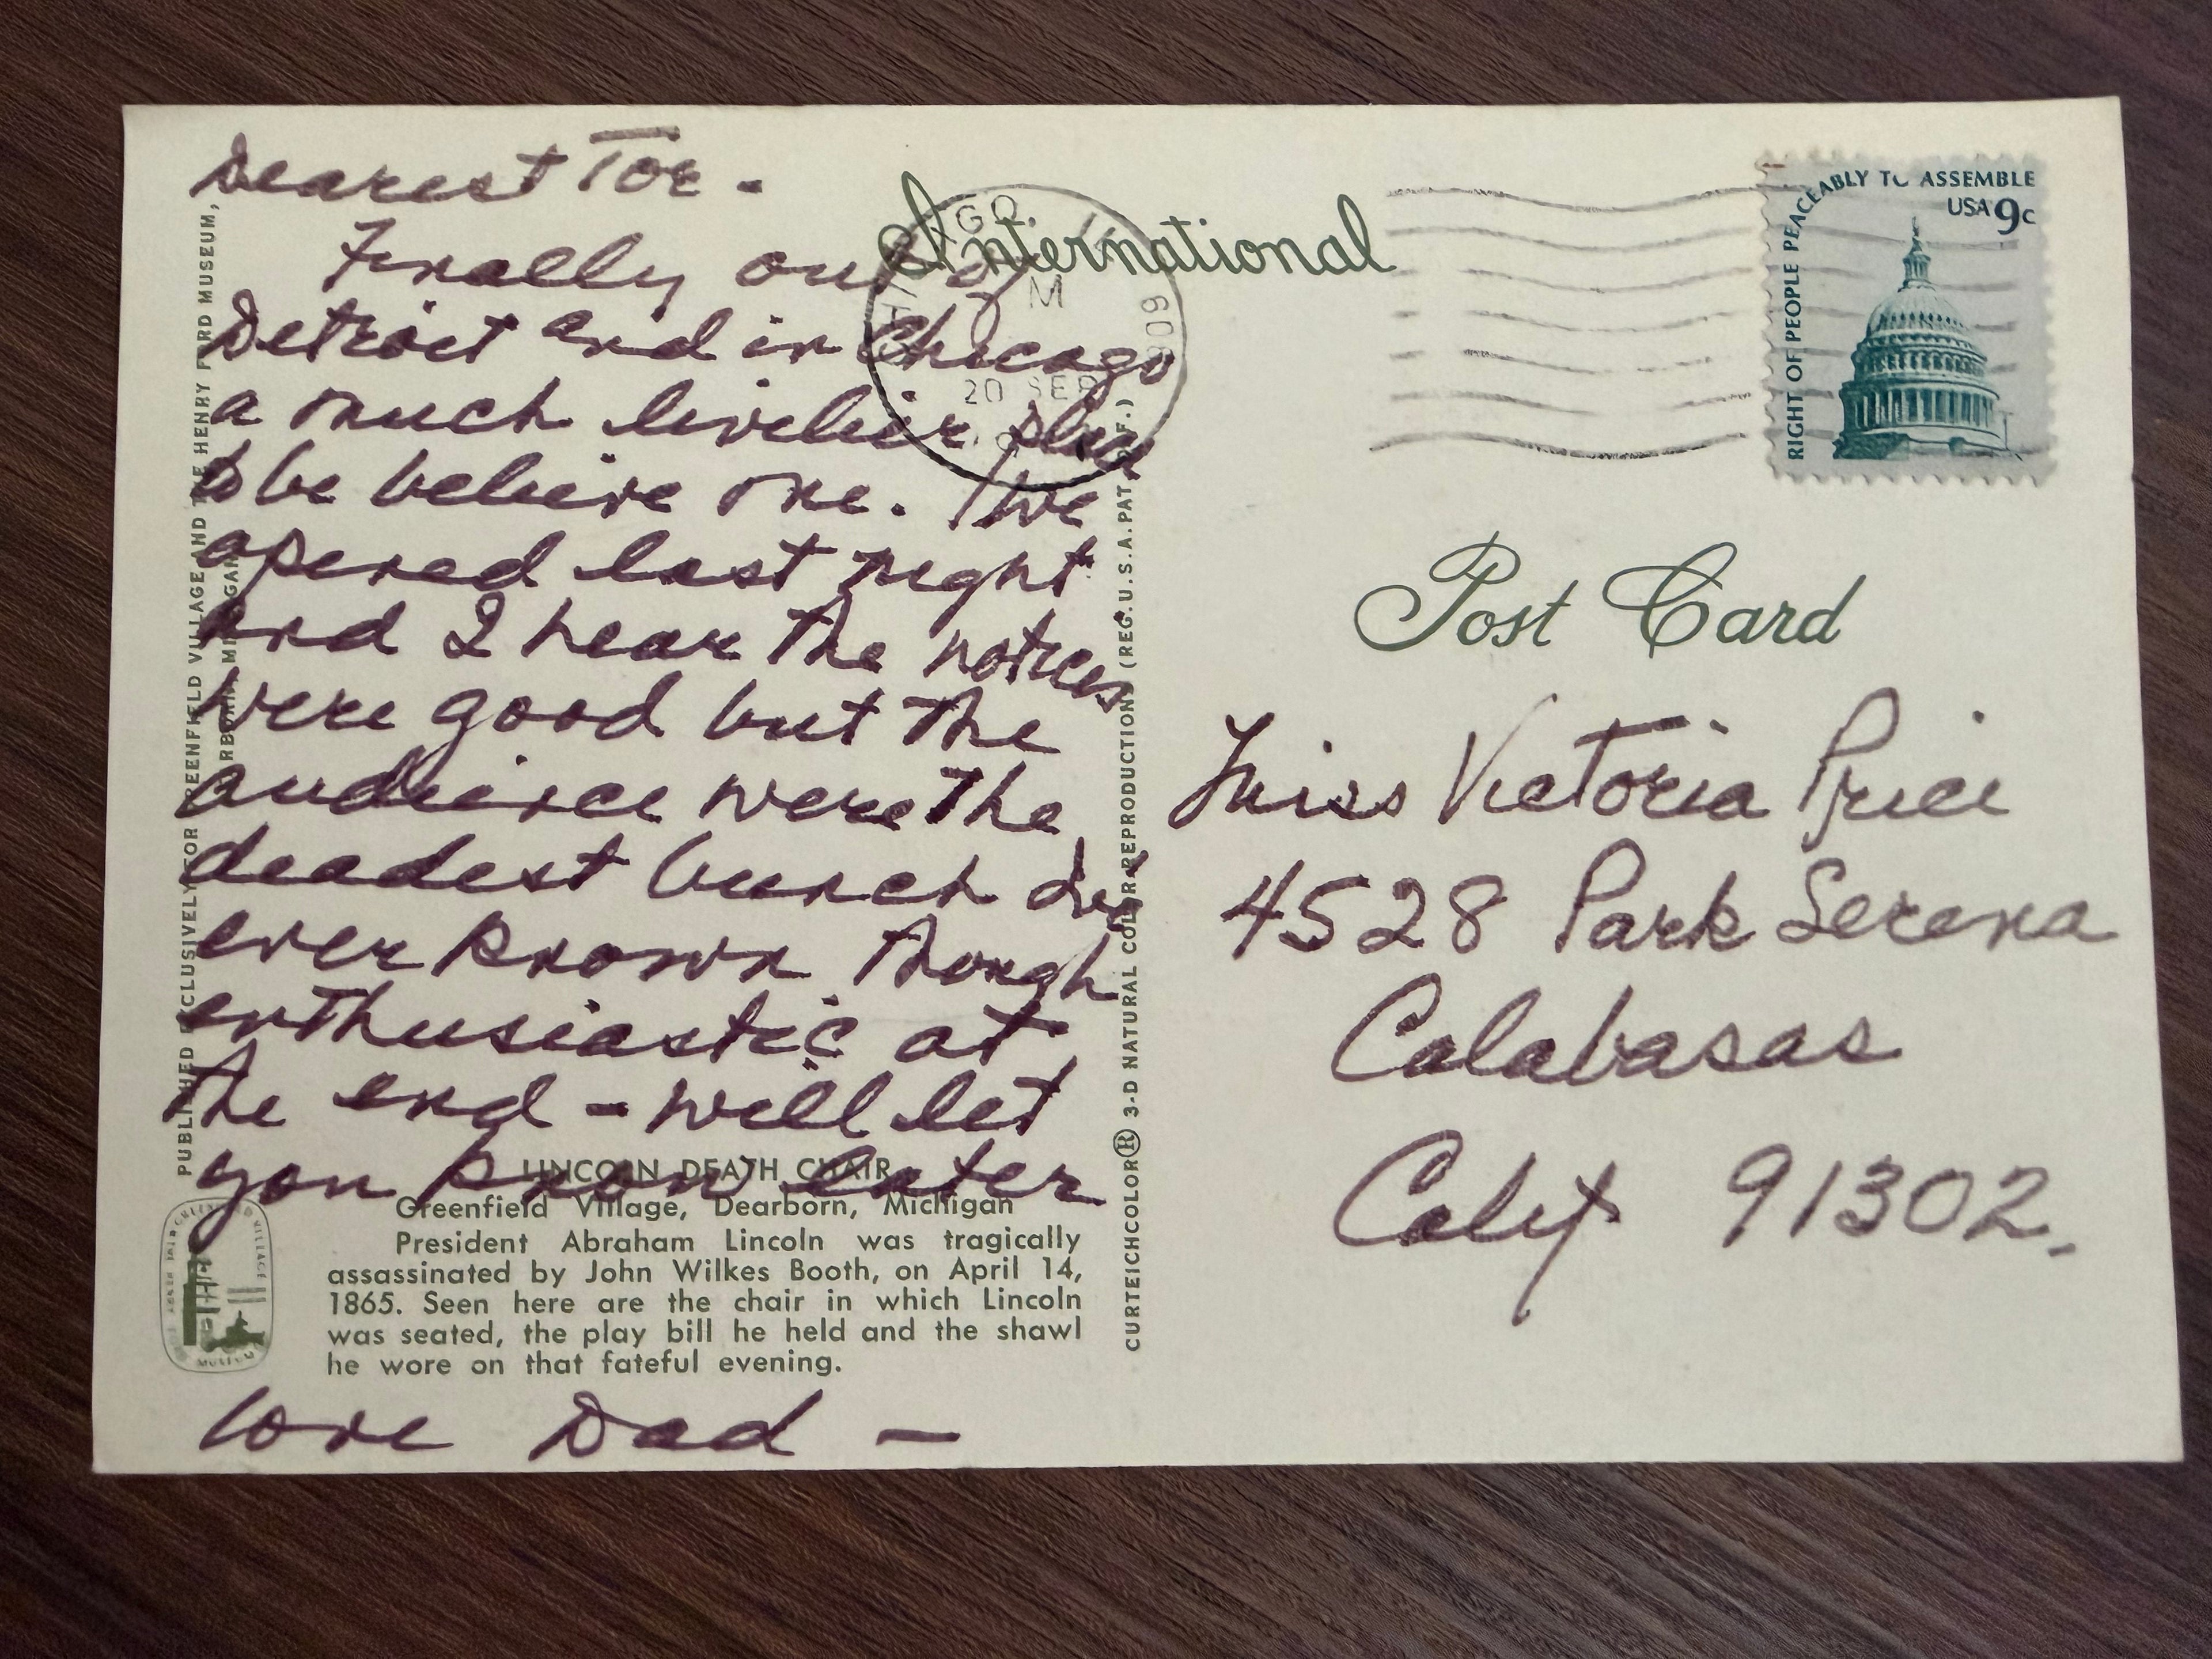 Dearest Toe -
Finally out of
Detroit and in Chicago
a much livelier place
to be believe me. We
opened last night
and I hear the notices
were good but the
audience were the
deadest bunch I've
ever known though
enthusiastic at
the end - Well let
you know later
love Dad -
LINCOLN DEATH CHAIR
Greenfield Village, Dearborn, Michigan
President Abraham Lincoln was tragically
assassinated by John Wilkes Booth, on April 14,
1865. Seen here are the chair in which Lincoln
was seated, the play bill he held and the shawl
he wore on that fateful evening.
PUBLISHED EXCLUSIVELY FOR GREENFIELD VILLAGE AND THE HENRY FORD MUSEUM,
DEARBORN, MICHIGAN
CURTEICHCOLOR® 3-D NATURAL COLOR REPRODUCTION (REG. U.S.A. PAT. OFF.)
International
20 SEP
RIGHT OF PEOPLE PEACEABLY TO ASSEMBLE
USA 9c
Post Card
Miss Victoria Price
4528 Park Serena
Calabasas
Calif 91302.